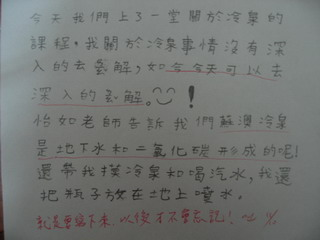 今天我們上了一堂關於冷泉的
課程,我關於冷泉事情沒有深
入的去了解,如今今天可以去
深入的了解。!
怡如老師告訴我們蘇澳冷泉
是地下水和二氧化碳形成的呢!
還帶我摸冷泉和喝汽水,我還
把瓶子放在地上噴水。
就是要寫下來 以後才不會忘記!~